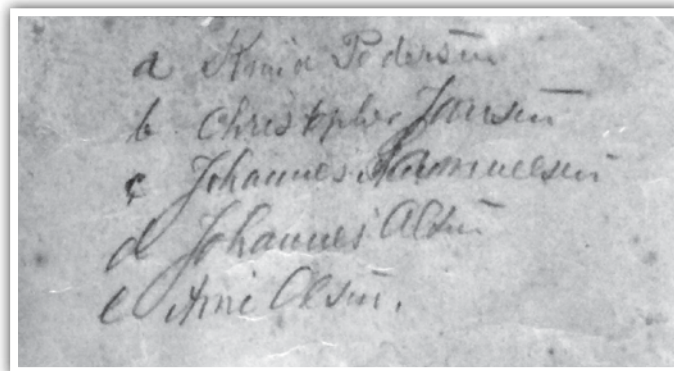 a Pedersen
b Christopher Jansen
c Johannes Rasmussen
d Johannes Olsen
e Arne Olsen.